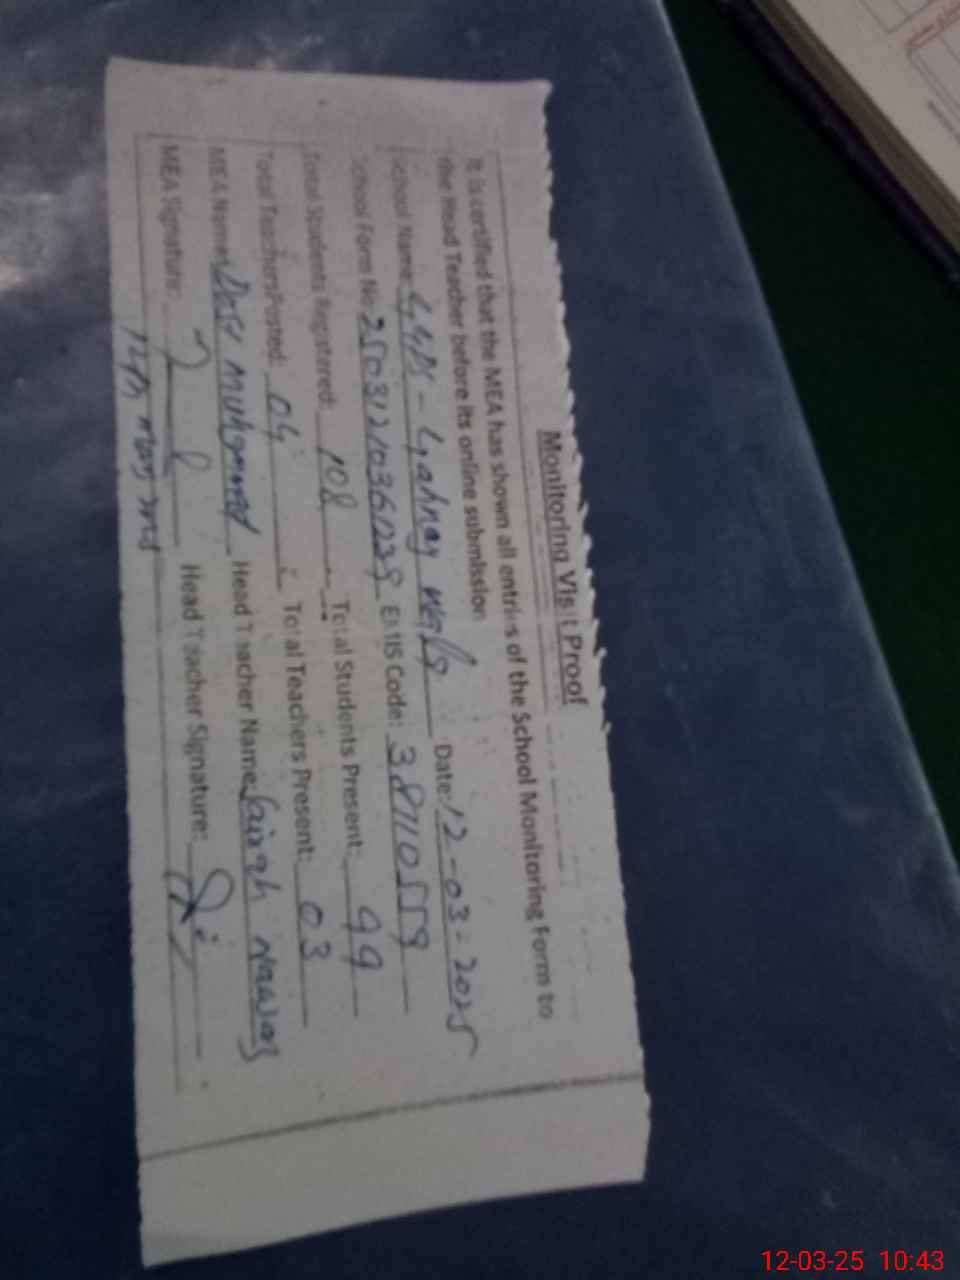 Monitoring Visit Proof
It is certified that the MEA has shown all entries of the School Monitoring Form to
the Head Teacher before its online submission
School Name: Date: 12-03-2025
School Form No: EMIS Code: 38110559
Total Students Registered: 108 Total Students Present: 99
Total Teachers Posted: 04 Total Teachers Present: 03
MEA Name: Dost Muhammad Head Teacher Name: Sairah Nawaz
MEA Signature: Head Teacher Signature:
12-03-25 10:43